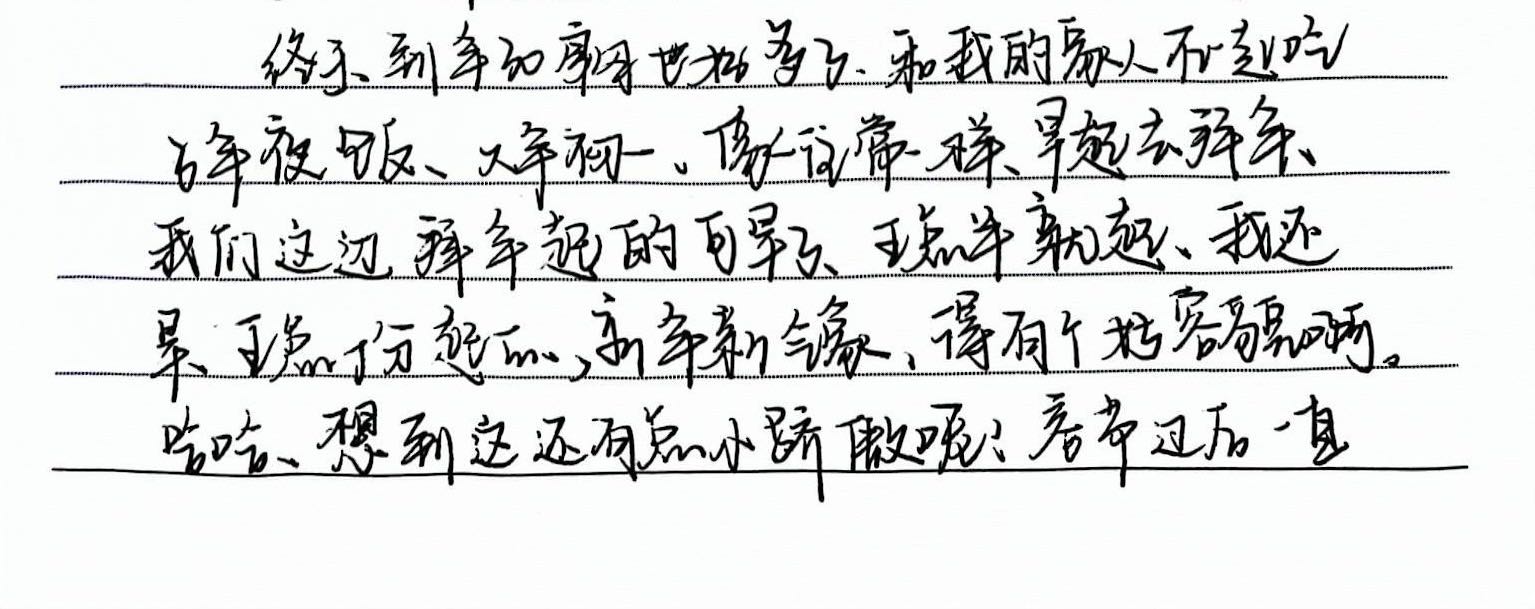 终于、到年30席围地相多了、和我的家人一起吃
了年夜饭、大年初一、像往常一样、早起去拜年、
我们这边拜年起的可早了、五点半就起、我还
早、五点10分起的、新年新气象、得有个好容易啊。
哈哈、想到这还有点小骄傲呢；春节过后一直